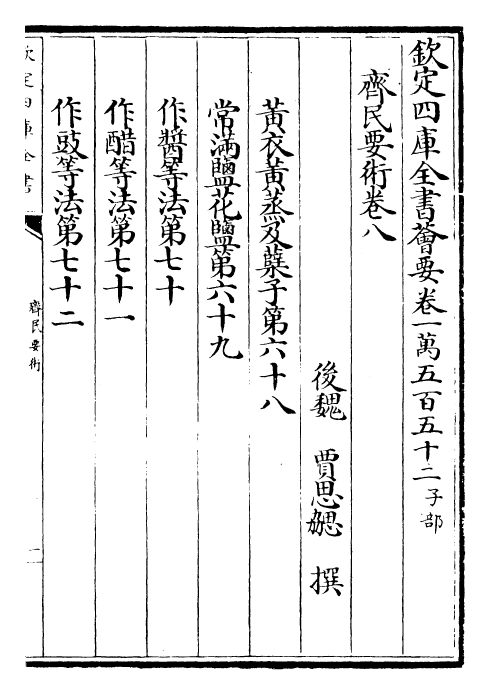 欽定四庫全書薈要卷一萬五百五十二子部
齊民要術卷八
後魏 賈思勰 撰
黃衣黃蒸及蘖子第六十八
常滿鹽花鹽第六十九
作醬等法第七十
作醋等法第七十一
作豉等法第七十二
欽定四庫全書
齊民要術
一